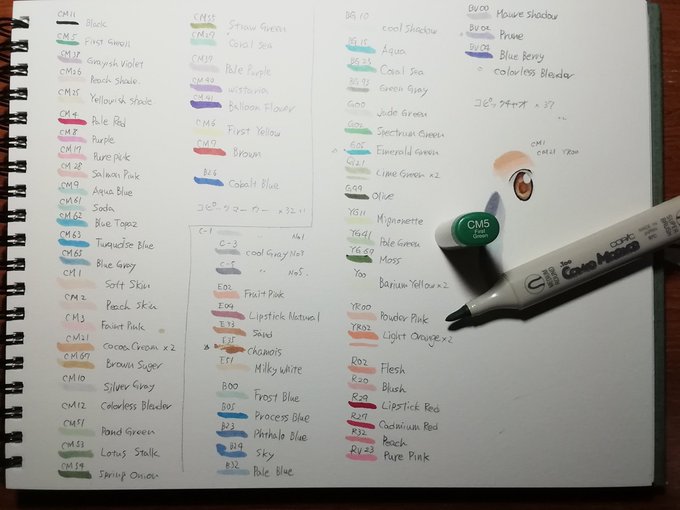 CM11 Black
CM5 First Green
CM38 Grayish Violet
CM26 Peach Shade
CM25 Yellowish shade
CM4 Pale Red
CM8 Purple
CM17 Pure pink
CM28 Salmon Pink
CM9 Aqua Blue
CM61 Soda
CM62 Blue Topaz
CM63 Turquoise Blue
CM65 Blue Gray
CM1 Soft Skin
CM2 Peach Skin
CM3 Faint Pink
CM21 Cocoa Cream ×2
CM67 Brown Suger
CM10 Silver Gray
CM12 Colorless Blender
CM51 Pond Green
CM53 Lotus Stalk
CM54 Spring Onion
CM55 Straw Green
CM29 Coral sea
CM39 Pale Purple
CM40 wistaria
CM41 Balloon Flower
CM6 First Yellow
CM7 Brown
B26 Cobalt Blue
コピックマーカー ×32
C-1 〃 No1
C-3 cool Gray No3
C-5 〃 No5
E02 Fruit Pink
E04 Lipstick Natural
E33 Sand
E35 Chamois
E51 Milky White
B00 Frost Blue
B05 Process Blue
B23 Phthalo Blue
B24 Sky
B32 Pale Blue
BG10 cool Shadow
BG15 Aqua
BG23 Coral Sea
BG93 Green Gray
G00 Jade Green
G02 Spectrum Green
G05 Emerald Green
G21 Lime Green ×2
G99 Olive
YG11 Mignonette
YG41 Pale Green
YG67 Moss
Y00 Barium Yellow ×2
YR00 Powder Pink
YR02 Light Orange ×2
R02 Flesh
R20 Blush
R29 Lipstick Red
R27 Cadmium Red
R32 Peach
RV23 Pure Pink
BV00 Mauve Shadow
BV02 Prune
BV04 Blue Berry
0 colorless Blender
コピックチャオ ×37
CM1
CM21 YR00
CM5
First
Green
Too COPIC
COPIC MARKER
MEDIUM
ROUND